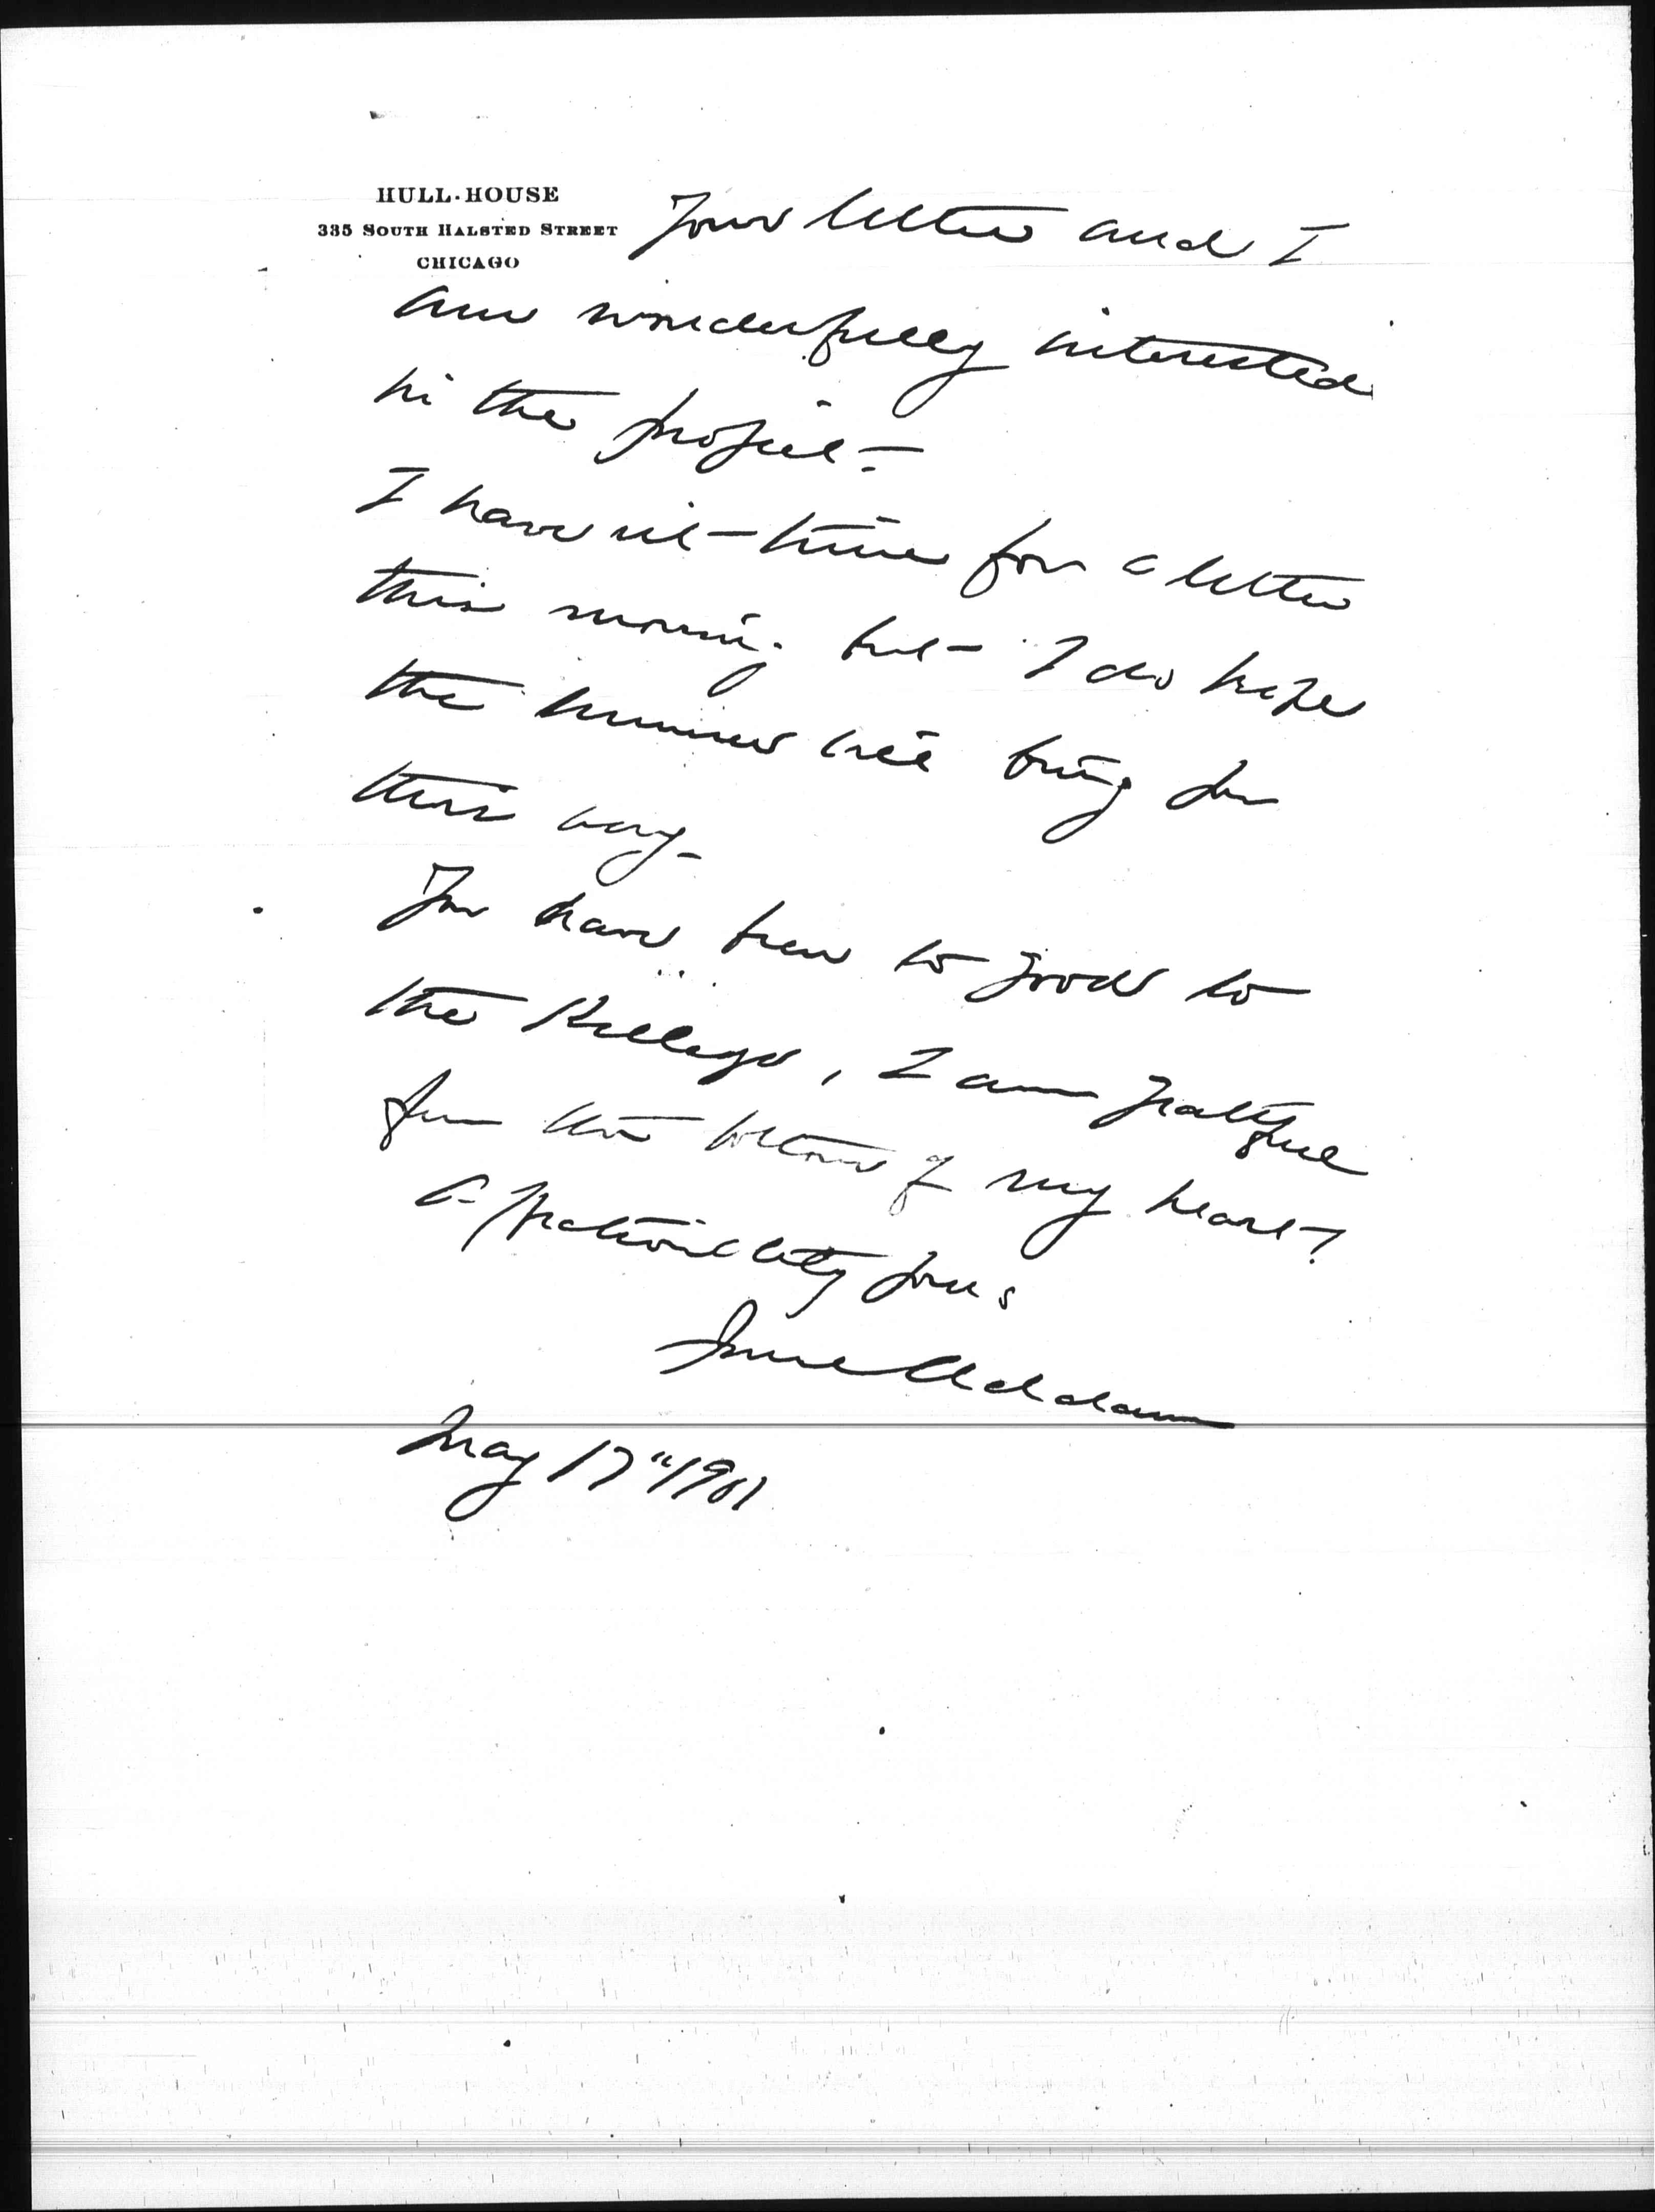 HULL-HOUSE
335 SOUTH HALSTED STREET
CHICAGO
Your letter and I
am wonderfully interested
in the project
I haven't time for a letter
this morning but I do hope
the summer will bring you
this way.
You have been so good to
the Kelleys, I am grateful
from the bottom of my heart!
Affectionately yours
Jane Addams
May 17" 1901